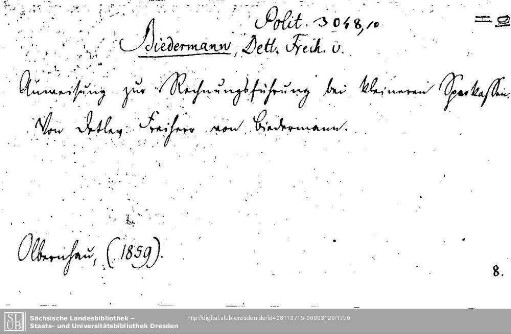 Polit. 3048,10
Biedermann, Detl. Freih. v.
Anweisung zur Rechnungsführung bei kleineren Sparkassen.
Von Detlev Freiherr von Biedermann.
Olbernhau, (1859).
8.
Sächsische Landesbibliothek –
Staats- und Universitätsbibliothek Dresden